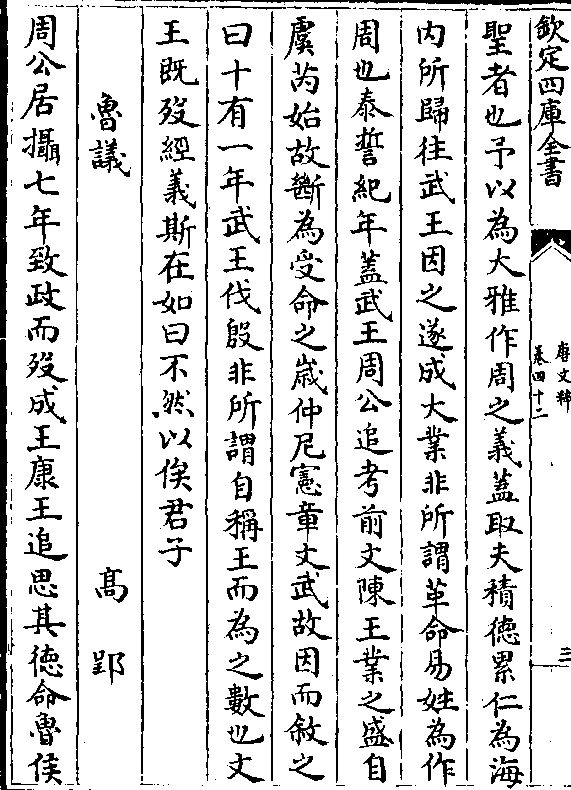 欽定四庫全書
唐文粹
卷四十二
三
聖者也予以為大雅作周之義蓋取夫積德累仁為海
内所歸往武王因之遂成大業非所謂革命易姓為作
周也泰誓紀年蓋武王周公追考前文陳王業之盛自
虞芮始故斷為受命之歲仲尼憲章文武故因而敘之
曰十有一年武王伐殷非所謂自稱王而為之數也文
王既歿經義斯在如曰不然以俟君子
魯議 高郢
周公居攝七年致政而歿成王康王追思其德命魯侯